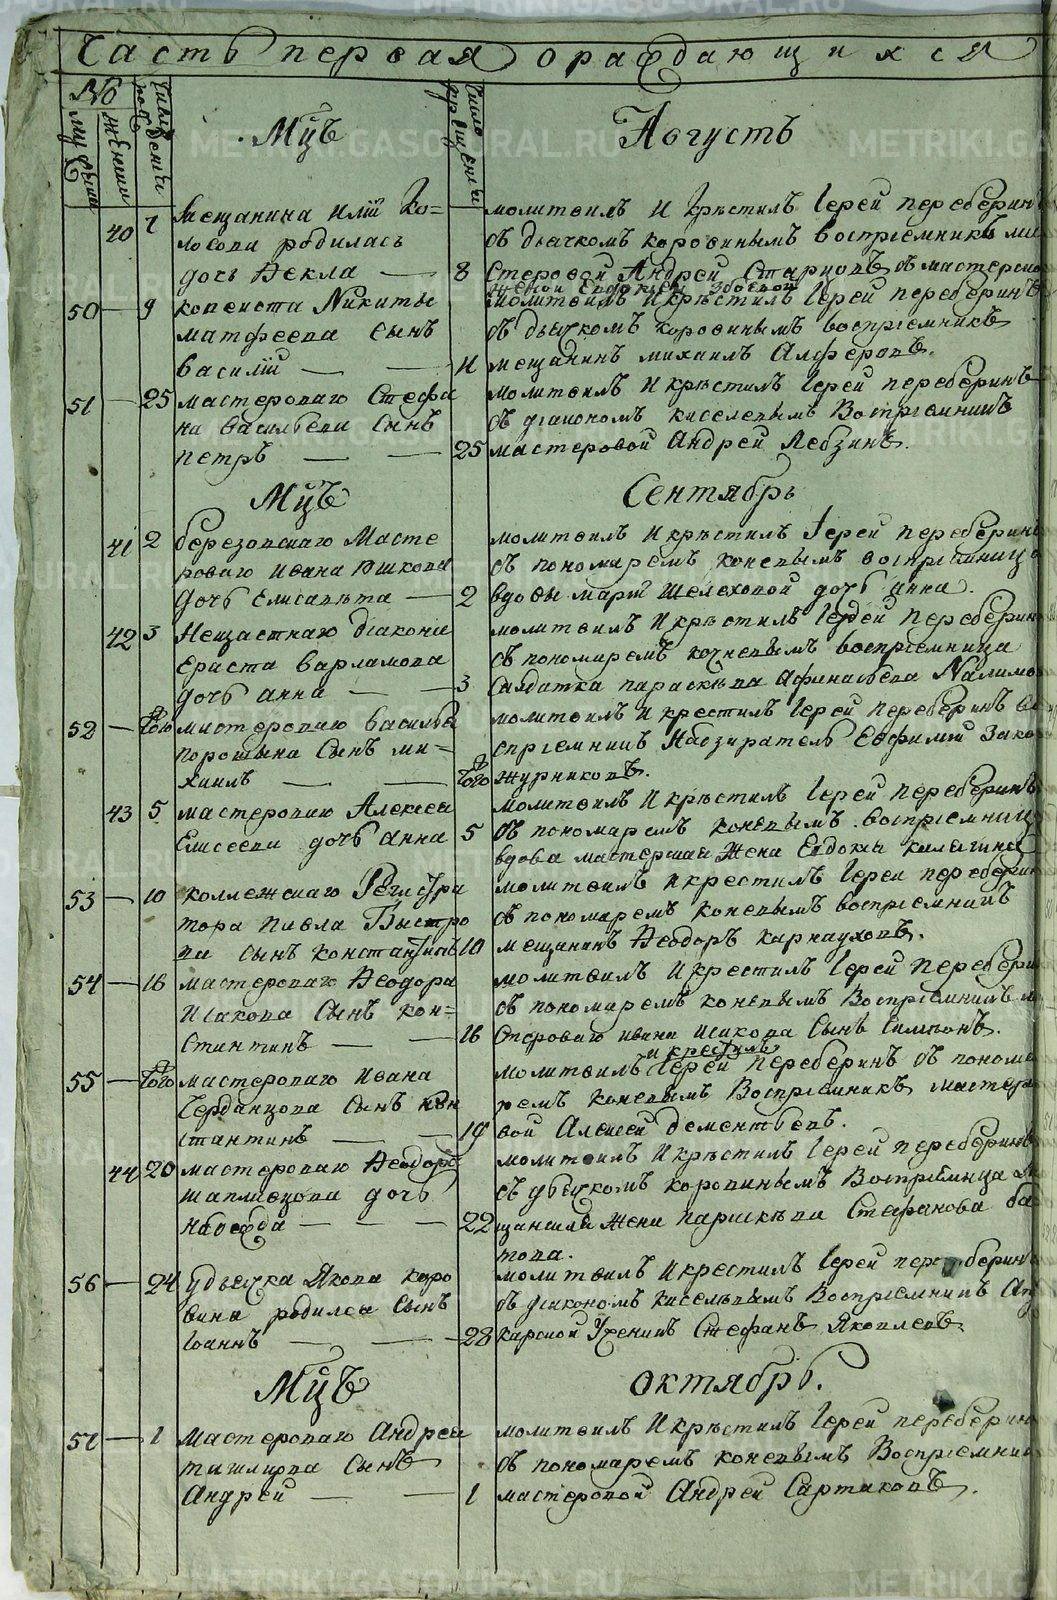 Часть первая о раждающихся
№
мужеска
женска
Число рождения
Число крещения
Мцъ Августъ
40 7 Мещанина Илiи Ко=
лосова родилась
дочь Ѳекла 8
молитвилъ и крѣстилъ Iерей переберинъ
съ дьячкомъ коровинымъ воспрiемникъ ма
стеровой Андрей Старцовъ съ мастерско
женой
50 9 копеиста Никиты
матфеева сынъ
василiй 11
молитвилъ и крѣстилъ Iерей переберинъ
съ дьячкомъ коровинымъ воспрiемникъ
мещанинъ михаилъ Алферовъ.
51 25 мастероваго Стефа
на васильева сынъ
петръ 25
молитвилъ и крѣстилъ Iерей переберинъ
съ дiакономъ киселевымъ воспрiемникъ
мастеровой Андрей Лебзинъ.
Мцъ Сентябрь
41 2 березовскаго Масте
роваго ивана Юшкова
дочь Елисавѣта 2
молитвилъ и крѣстилъ Iерей переберинъ
съ пономаремъ коневымъ воспрiемница
вдовы марiи Шелеховой дочь анна.
42 3 дiакона
Ераста варламова
дочь анна 3
молитвилъ и крѣстилъ Iерей переберинъ
съ пономаремъ коневымъ воспрiемница
Солдатка параскѣва Афанасьева Налимов
52 того мастероваго василья
порошина сынъ ми=
хаилъ того
молитвилъ и крестилъ Iерей переберинъ во
спрiемникъ Надзиратель Евфимiй Зако
журниковъ.
43 5 мастероваго Алексея
Елисеева дочь анна 5
молитвилъ и крѣстилъ Iерей переберинъ
съ пономаремъ коневымъ воспрiемница
вдова мастерская жена Евдокья калугина
53 10 коллежскаго Регистра
тора павла Быстро
ва сынъ константинъ 10
молитвилъ и крестилъ Iерей переберинъ
съ пономаремъ коневымъ воспрiемникъ
мещанинъ Ѳеодоръ карнауховъ.
54 16 мастероваго Ѳеодора
Исакова сынъ кон=
стантинъ 16
молитвилъ и крестилъ Iерей переберинъ
съ пономаремъ коневымъ воспрiемникъ ма
стероваго ивана Исакова сынъ Симеонъ.
55 того мастероваго ивана
Черданцова сынъ кон
стантинъ 19
и крестилъ
молитвилъ Iерей переберинъ съ понома
ремъ коневымъ воспрiемникъ мастеро
вой Алексей дементьевъ.
44 20 мастероваго Ѳеодора
дочь
надежда 22
молитвилъ и крѣстилъ Iерей переберинъ
съ дьячкомъ коровинымъ воспрiемница ме
щанская жена параскѣва Стефанова ба
това.
56 24 у дьячка Якова коро
вина родился сынъ
Iоаннъ 28
молитвилъ и крестилъ Iерей переберинъ
съ дiакономъ киселевымъ воспрiемникъ Ап
карской Ученикъ Стефанъ Яковлевъ
Мцъ октябрь.
57 1 Мастероваго Андрея
сынъ
Андрей 1
молитвилъ и крѣстилъ Iерей переберинъ
съ пономаремъ коневымъ воспрiемникъ
мастеровой Андрей Сартаковъ.
METRIKI.GASO-URAL.RU